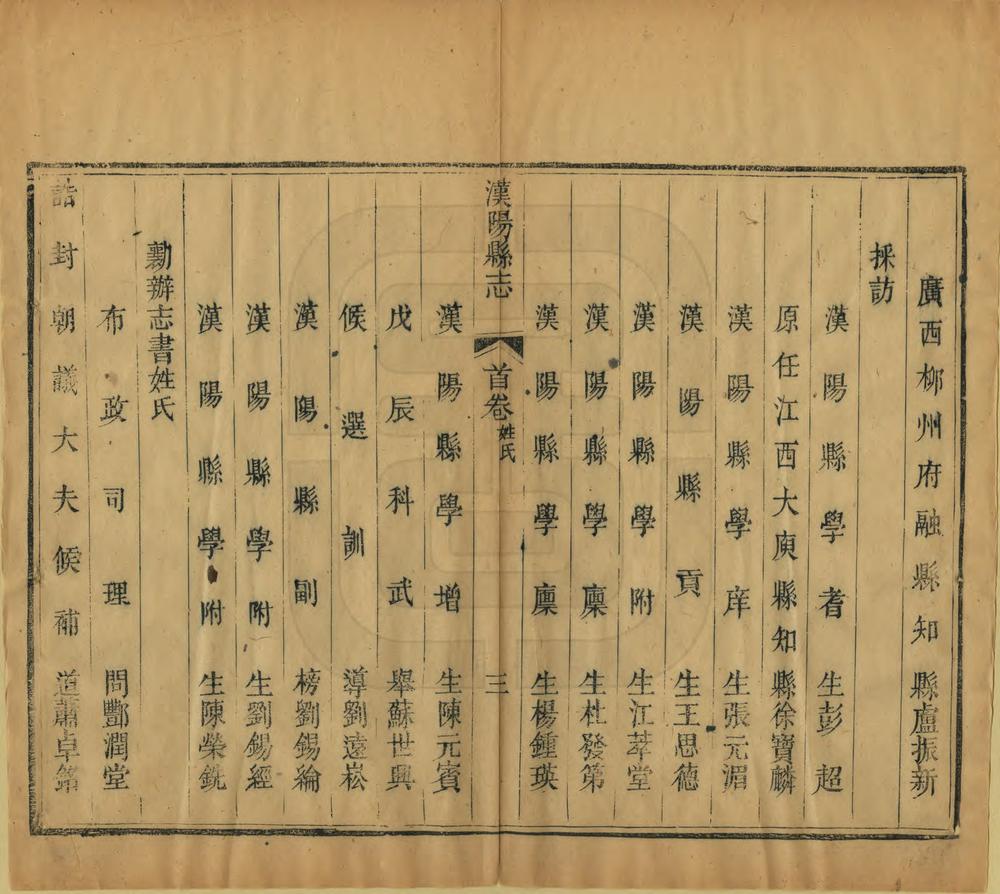 廣西柳州府融縣知縣盧振新
採訪
漢陽縣學耆生彭超
原任江西大庾縣知縣徐寶麟
漢陽縣學庠生張元湄
漢陽縣貢生王思德
漢陽縣學附生江萃堂
漢陽縣學廩生杜發第
漢陽縣學廩生楊鍾瑛
漢陽縣志 首卷 姓氏 三
漢陽縣學增生陳元賓
戊辰科武舉蘇世興
候選訓導劉遠崧
漢陽縣副榜劉錫綸
漢陽縣學附生劉錫經
漢陽縣學附生陳榮銑
勷辦志書姓氏
布政司理問酆潤堂
誥封朝議大夫候補道蕭卓銘